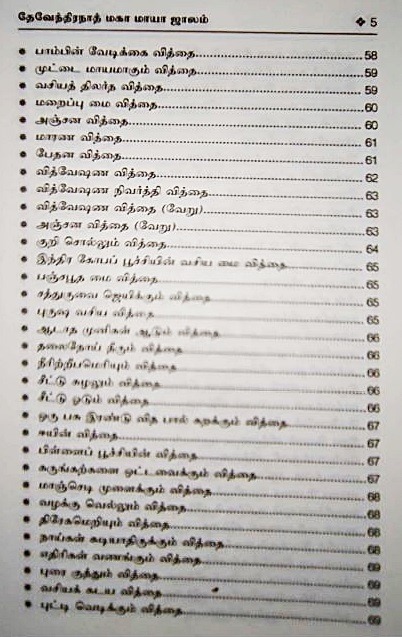 தேவேந்திரநாத் மகா மாயா ஜாலம் ❖ 5
● பாம்பின் வேடிக்கை வித்தை 58
● முட்டை மாயமாகும் வித்தை 59
● வசியத் திலர்த வித்தை 59
● மறைப்பு மை வித்தை 60
● அஞ்சன வித்தை 60
● மாரண வித்தை 61
● பேதன வித்தை 61
● வித்வேஷண வித்தை 62
● வித்வேஷண நிவர்த்தி வித்தை 63
● வித்வேஷண வித்தை (வேறு) 63
● அஞ்சன வித்தை (வேறு) 63
● குறி சொல்லும் வித்தை 64
● இந்திர கோபப் பூச்சியின் வசிய மை வித்தை 65
● பஞ்சபூத மை வித்தை 65
● சத்துருவை ஜெயிக்கும் வித்தை 65
● புருஷ வசிய வித்தை 65
● ஆடாத முனிகள் ஆடும் வித்தை 66
● தலைநோய் தீரும் வித்தை 66
● நீரிற்றீபமெரியும் வித்தை 66
● சீட்டு சுழலும் வித்தை 66
● சீட்டு ஓடும் வித்தை 66
● ஒரு பசு இரண்டு வித பால் கறக்கும் வித்தை 67
● ஈயின் வித்தை 67
● பிள்ளைப் பூச்சியின் வித்தை 67
● கருங்கற்களை ஒட்டவைக்கும் வித்தை 67
● மாஞ்செடி முளைக்கும் வித்தை 68
● வழக்கு வெல்லும் வித்தை 68
● திரேகமெறியும் வித்தை 68
● நாய்கள் கடியாதிருக்கும் வித்தை 68
● எதிரிகள் வணங்கும் வித்தை 69
● புரை குத்தும் வித்தை 69
● வசியக் கடய வித்தை 69
● புட்டி வெடிக்கும் வித்தை 69